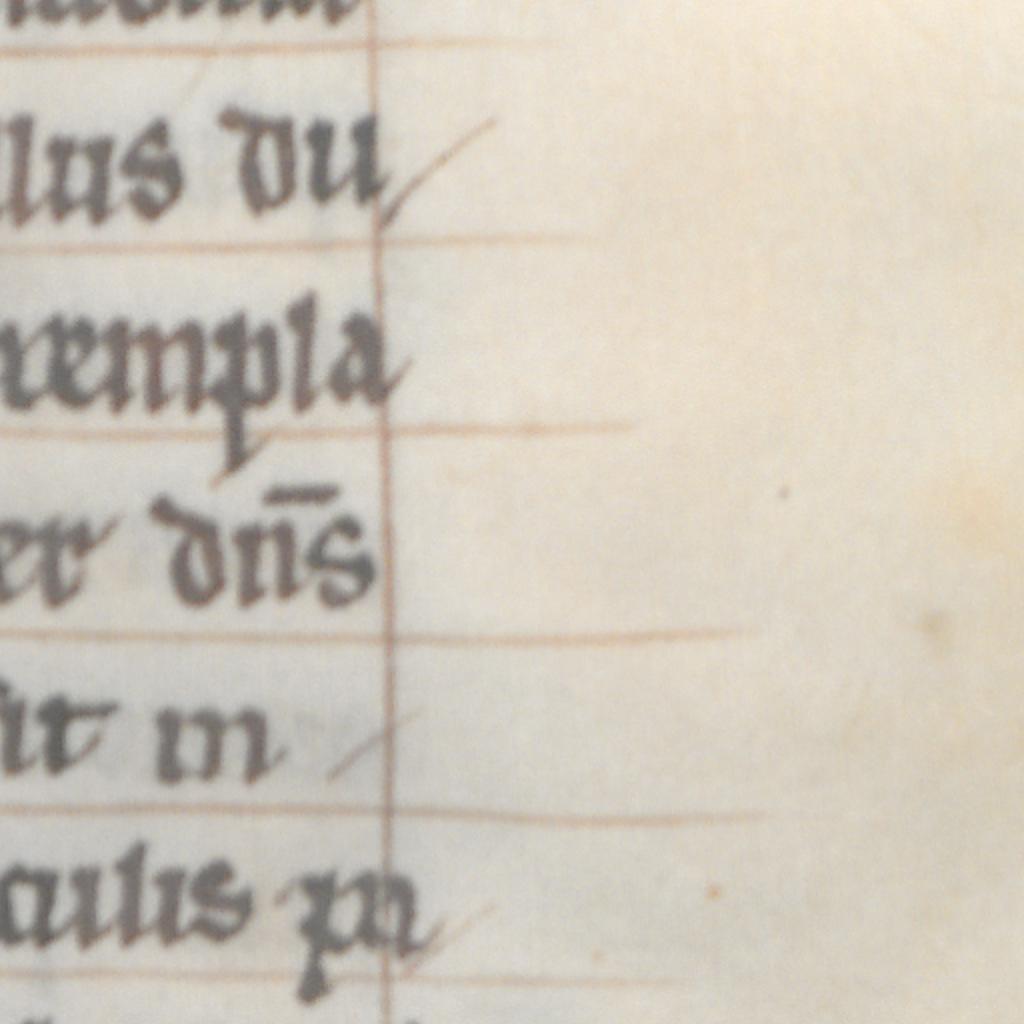 llus du
xempla
er dn̄s
sit in
culis pn